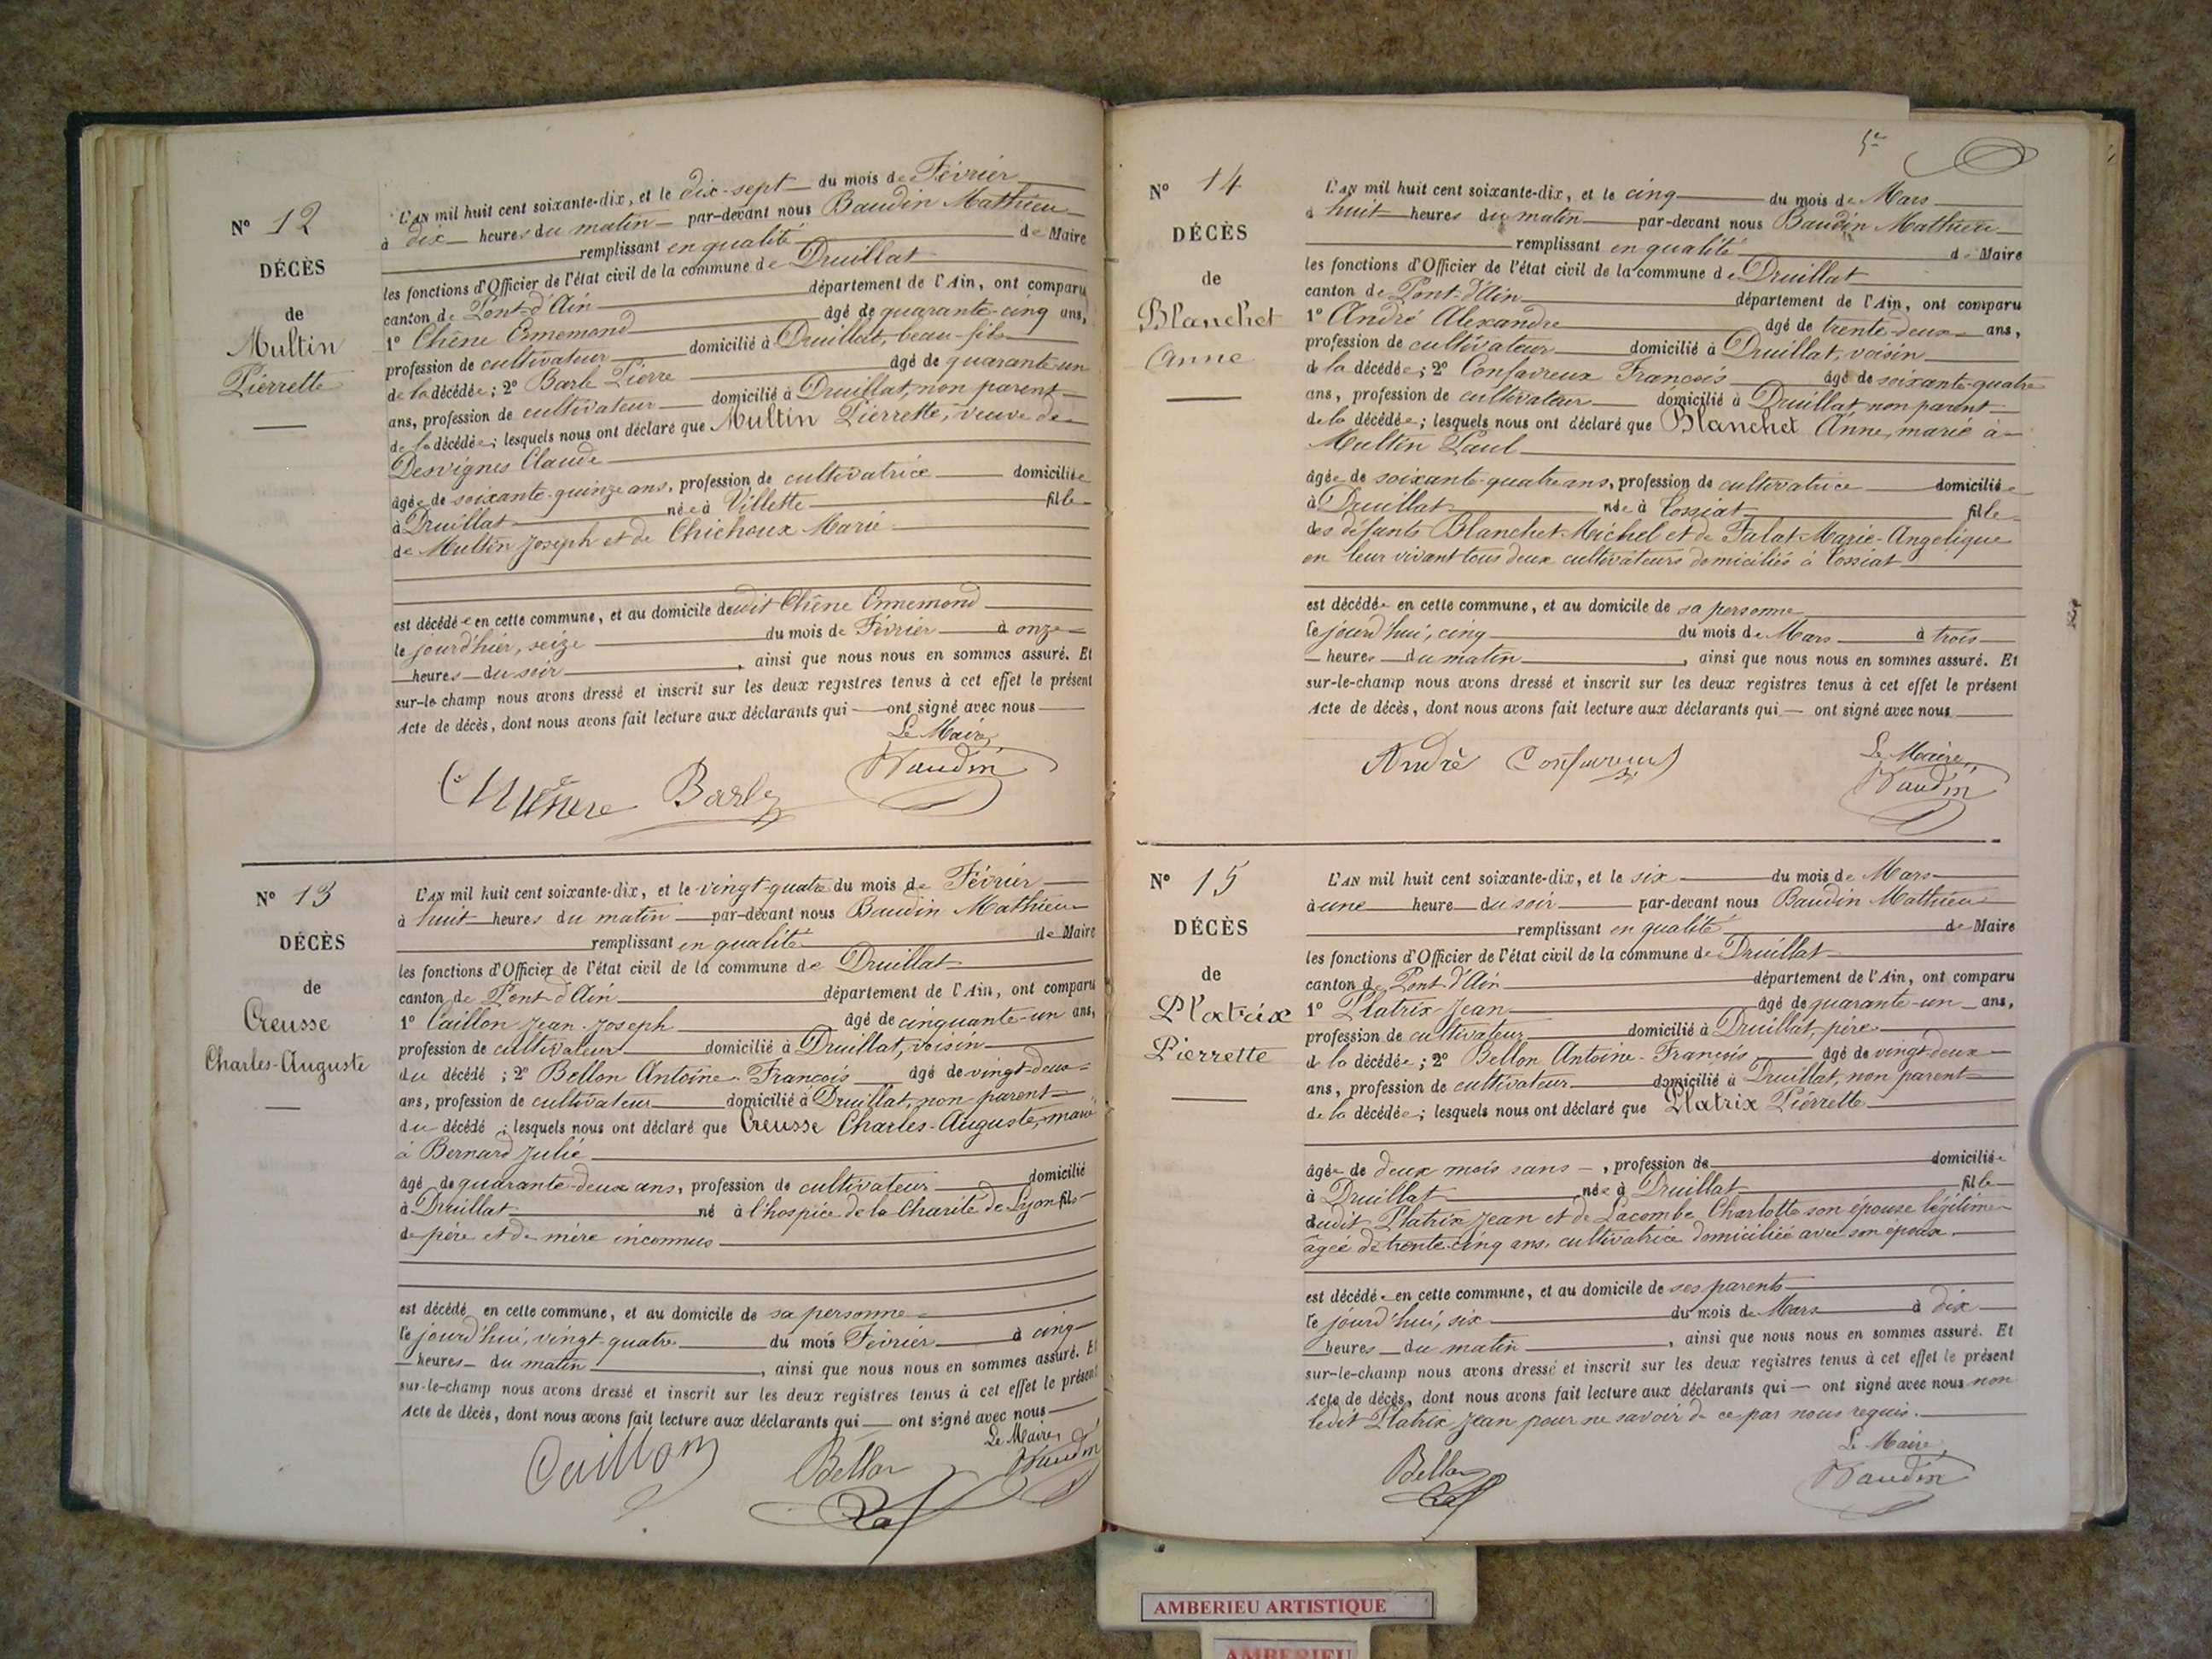 N° 12
DÉCÈS
de
Multin
Pierrette
L'AN mil huit cent soixante-dix, et le dix-sept du mois de Février
à dix heures du matin par-devant nous Baudin Mathieu
remplissant en qualité de Maire
les fonctions d'Officier de l'état civil de la commune de Druillat
canton de Pont-d'Ain département de l'Ain, ont comparu
1° Chêne Ennemond âgé de quarante-cinq ans,
profession de cultivateur domicilié à Druillat, beau-fils
de la décédée; 2° Barle Pierre âgé de quarante-un
ans, profession de cultivateur domicilié à Druillat, non parent
de la décédée; lesquels nous ont déclaré que Multin Pierrette, veuve de
Desvignes Claude
âgée de soixante-quinze ans, profession de cultivatrice domiciliée
à Druillat née à Villette fille
de Multin Joseph et de Chichoux Marie
est décédée en cette commune, et au domicile dudit Chêne Ennemond
le jourd'hier, seize du mois de Février à onze
heures du soir, ainsi que nous nous en sommes assuré. Et
sur-le-champ nous avons dressé et inscrit sur les deux registres tenus à cet effet le présent
Acte de décès, dont nous avons fait lecture aux déclarants qui ont signé avec nous
Le Maire,
Barle Baudin
N° 13
DÉCÈS
de
Creusse
Charles-Auguste
L'AN mil huit cent soixante-dix, et le vingt-quatre du mois de Février
à huit heures du matin par-devant nous Baudin Mathieu
remplissant en qualité de Maire
les fonctions d'Officier de l'état civil de la commune de Druillat
canton de Pont d'Ain département de l'Ain, ont comparu
1° Caillon Jean-Joseph âgé de cinquante-un ans,
profession de cultivateur domicilié à Druillat, voisin
du décédé; 2° Bellon Antoine-François âgé de vingt-deux
ans, profession de cultivateur domicilié à Druillat, non parent
du décédé; lesquels nous ont déclaré que Creusse Charles-Auguste, marié
à Bernard Julie
âgé de quarante-deux ans, profession de cultivateur domicilié
à Druillat né à l'hospice de la Charité de Lyon fils
de père et de mère inconnus
est décédé en cette commune, et au domicile de sa personne
le jourd'hui, vingt-quatre du mois Février à cinq
heures du matin, ainsi que nous nous en sommes assuré. Et
sur-le-champ nous avons dressé et inscrit sur les deux registres tenus à cet effet le présent
Acte de décès, dont nous avons fait lecture aux déclarants qui ont signé avec nous
Le Maire,
Caillon Bellon Baudin
5e
N° 14
DÉCÈS
de
Blanchet
Anne
L'AN mil huit cent soixante-dix, et le cinq du mois de Mars
à huit heures du matin par-devant nous Baudin Mathieu
remplissant en qualité de Maire
les fonctions d'Officier de l'état civil de la commune de Druillat
canton de Pont-d'Ain département de l'Ain, ont comparu
1° André Alexandre âgé de trente-deux ans,
profession de cultivateur domicilié à Druillat, voisin
de la décédée; 2° Confavreux François âgé de soixante-quatre
ans, profession de cultivateur domicilié à Druillat non parent
de la décédée; lesquels nous ont déclaré que Blanchet Anne, marié à
Multin Paul
âgée de soixante-quatre ans, profession de cultivatrice domiciliée
à Druillat née à Tossiat fille
des défunts Blanchet Michel et de Falat Marie-Angelique
en leur vivant tous deux cultivateurs domiciliés à Tossiat
est décédée en cette commune, et au domicile de sa personne
le jourd'hui, cinq du mois de Mars à trois
heures du matin, ainsi que nous nous en sommes assuré. Et
sur-le-champ nous avons dressé et inscrit sur les deux registres tenus à cet effet le présent
Acte de décès, dont nous avons fait lecture aux déclarants qui ont signé avec nous
Le Maire,
André Confavreux Baudin
N° 15
DÉCÈS
de
Platrix
Pierrette
L'AN mil huit cent soixante-dix, et le six du mois de Mars
à une heure du soir par-devant nous Baudin Mathieu
remplissant en qualité de Maire
les fonctions d'Officier de l'état civil de la commune de Druillat
canton de Pont d'Ain département de l'Ain, ont comparu
1° Platrix Jean âgé de quarante-un ans,
profession de cultivateur domicilié à Druillat, père
de la décédée; 2° Bellon Antoine-François âgé de vingt-deux
ans, profession de cultivateur domicilié à Druillat, non parent
de la décédée; lesquels nous ont déclaré que Platrix Pierrette
âgée de deux mois sans, profession de domiciliée
à Druillat née à Druillat fille
dudit Platrix Jean et de Lacombe Charlotte son épouse légitime
âgée de trente-cinq ans, cultivatrice domiciliée avec son époux
est décédée en cette commune, et au domicile de ses parents
le jourd'hui, six du mois de Mars à dix
heures du matin, ainsi que nous nous en sommes assuré. Et
sur-le-champ nous avons dressé et inscrit sur les deux registres tenus à cet effet le présent
Acte de décès, dont nous avons fait lecture aux déclarants qui ont signé avec nous non
ledit Platrix Jean pour ne savoir de ce par nous requis.
Le Maire,
Bellon Baudin
AMBERIEU ARTISTIQUE
AMBERIEU